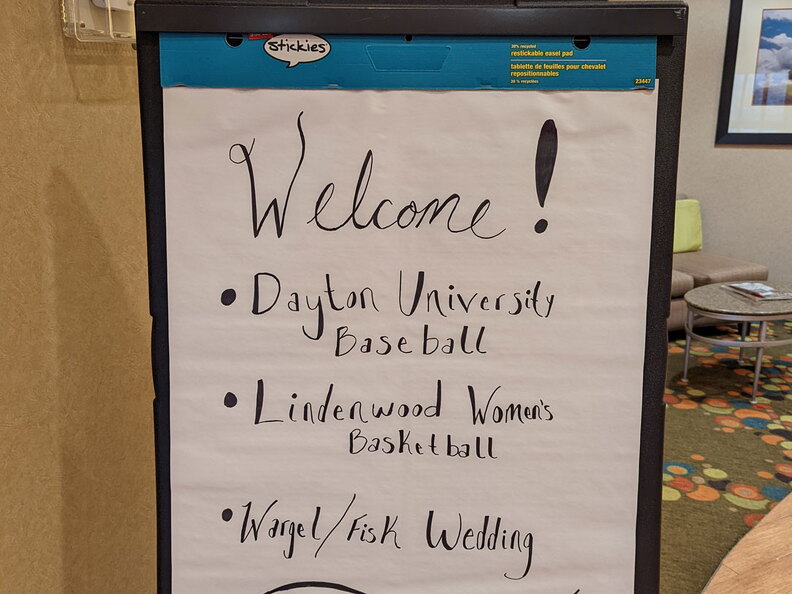 stickies
30% recycled
restickable easel pad
tablette de feuilles pour chevalet
repositionnables
30 % recyclées
23447
Welcome!
• Dayton University
Baseball
• Lindenwood Women's
Basketball
• Wargel/Fisk Wedding